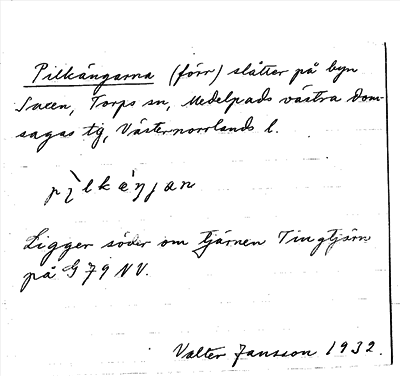 Pilkängarna (förr) slåtter på byn
Sveen, Torps sn, Medelpads västra dom-
sagas tg, Västernorrlands l.
pìlkæ̀ŋjan
Ligger söder om tjärnen Tingtjärn
på G 79 NV.
Valter Jansson 1932.